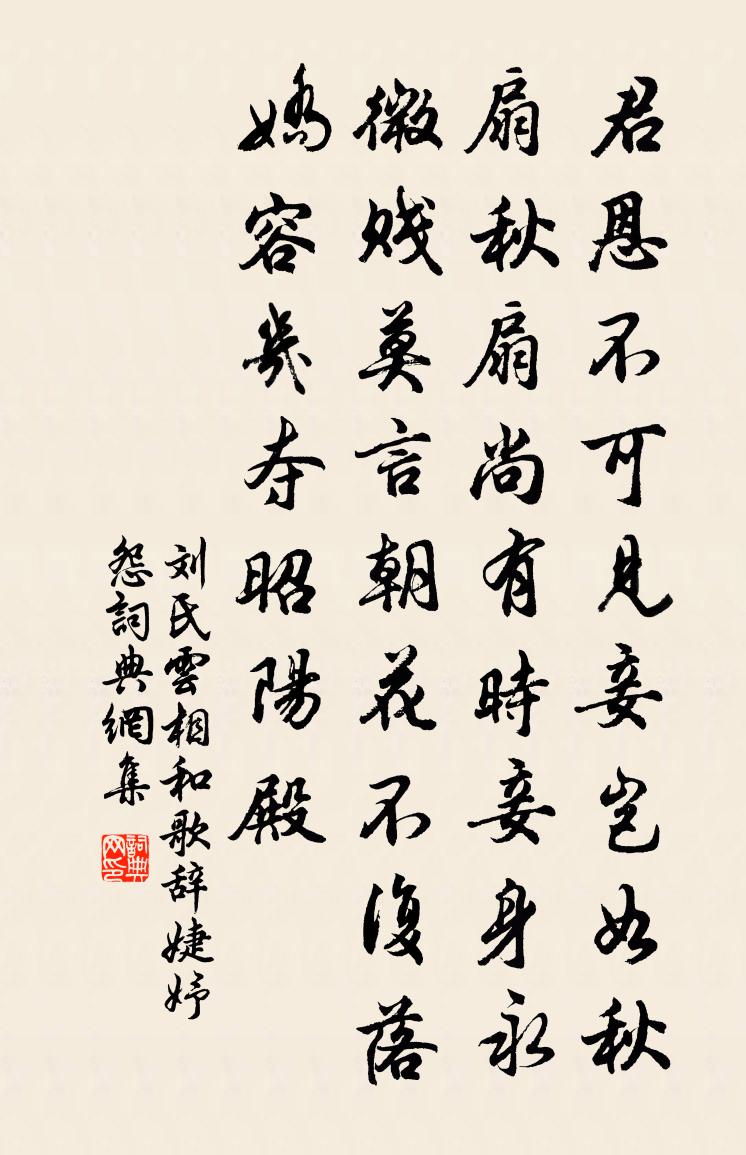 君恩不可見妾豈如秋
扇秋扇尚有時妾身永
微贱莫言朝花不復落
嬌容幾夺昭陽殿
刘氏雲相和歌辞婕妤
怨詞典網集
詞典
网印